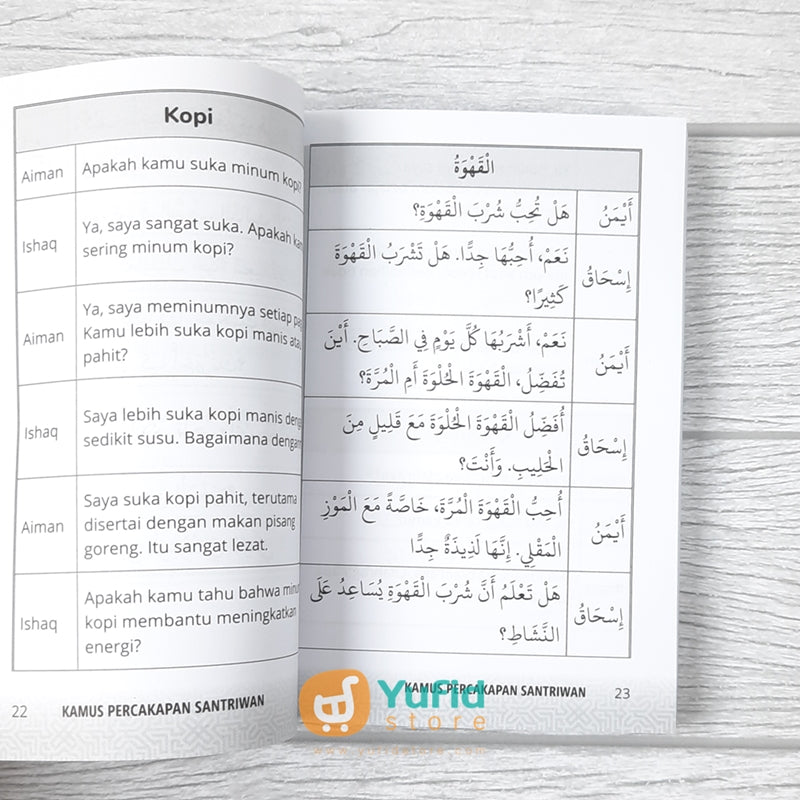 Kopi
Aiman
Apakah kamu suka minum kopi?
Ishaq
Ya, saya sangat suka. Apakah
sering minum kopi?
Aiman
Ya, saya meminumnya setiap
Kamu lebih suka kopi manis atau
pahit?
Ishaq
Saya lebih suka kopi manis
sedikit susu. Bagaimana
Aiman
Saya suka kopi pahit, terutama
disertai dengan makan pisang
goreng. Itu sangat lezat.
Ishaq
Apakah kamu tahu bahwa
kopi membantu meningkatkan
energi?
22
KAMUS PERCAKAPAN SANTRIWAN
الْقَهْوَةُ
أَيْمَنُ
هَلْ تُحِبُّ شُرْبَ الْقَهْوَةِ؟
إِسْحَاقُ
نَعَمْ، أُحِبُّهَا جِدًّا. هَلْ تَشْرَبُ الْقَهْوَةَ
كَثِيرًا؟
أَيْمَنُ
نَعَمْ، أَشْرَبُهَا كُلَّ يَوْمٍ فِي الصَّبَاحِ. أَيْنَ
تُفَضِّلُ، الْقَهْوَةَ الْحُلْوَةَ أَمِ الْمُرَّةَ؟
إِسْحَاقُ
أُفَضِّلُ الْقَهْوَةَ الْحُلْوَةَ مَعَ قَلِيلٍ مِنَ
الْحَلِيبِ. وَأَنْتَ؟
أَيْمَنُ
أُحِبُّ الْقَهْوَةَ الْمُرَّةَ، خَاصَّةً مَعَ الْمَوْزِ
الْمَقْلِي. إِنَّهَا لَذِيذَةٌ جِدًّا
إِسْحَاقُ
هَلْ تَعْلَمُ أَنَّ شُرْبَ الْقَهْوَةِ يُسَاعِدُ عَلَى
النَّشَاطِ؟
KAMUS PERCAKAPAN SANTRIWAN
23
Yufid
store
www.yufidstore.com